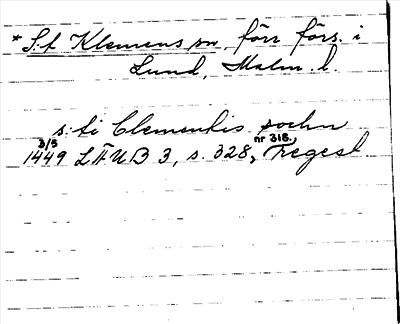 * S:t Klemens sn, förr förs. i
Lund, Malm. l.
s:ti Clementis sochn
3/5 nr 315.,
1449 LÄUB 3, s. 328, Fregest